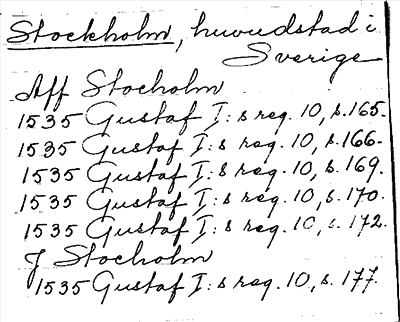 Stockholm, huvudstad i
Sverige
Aff Stocholm
1535 Gustaf I:s reg. 10, s. 165.
1535 Gustaf I:s reg. 10, s. 166.
1535 Gustaf I:s reg. 10, s. 169.
1535 Gustaf I:s reg. 10, s. 170.
1535 Gustaf I:s reg. 10, s. 172.
J Stocholm
1535 Gustaf I:s reg. 10, s. 177.